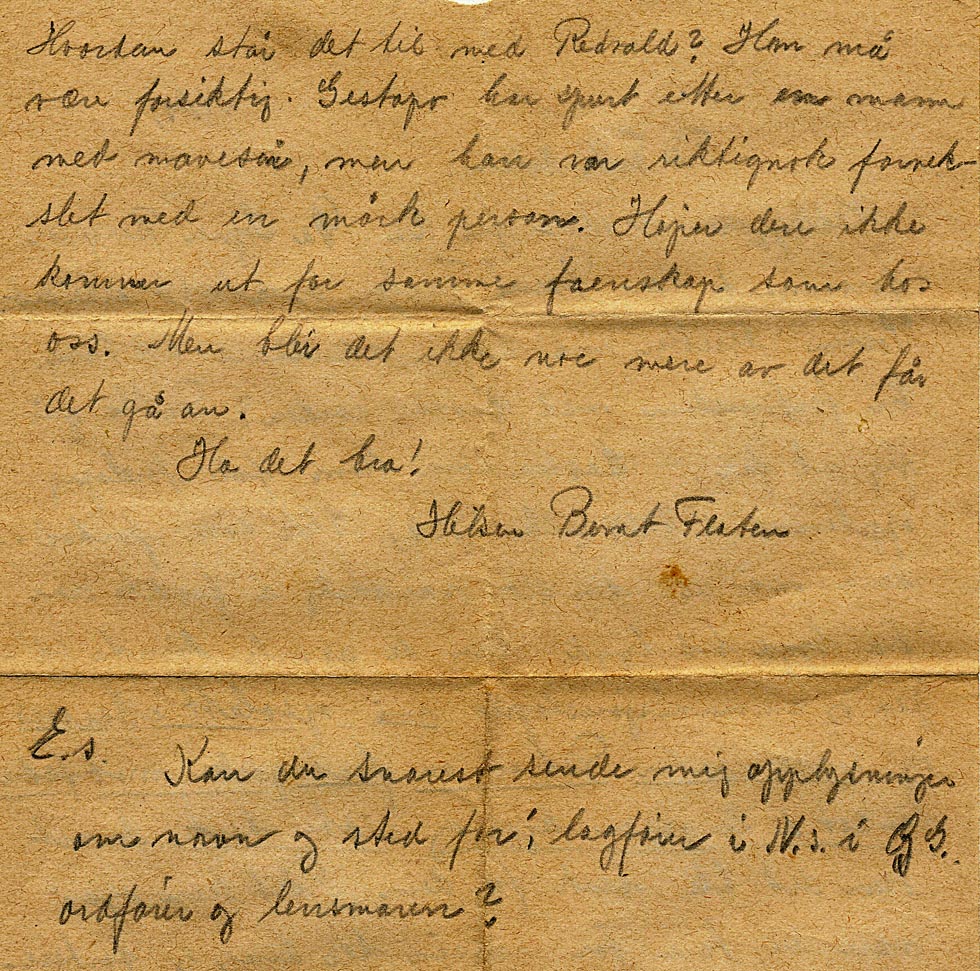 Hvordan står det til med Redvald? Han må
være forsiktig. Gestapo har spurt etter en mann
med mavesår, men han var riktignok forvek-
slet med en mörk person. Håper dere ikke
kommer ut for samme faenskap som hos
oss. Men blir det ikke noe mere av det får
det gå an.
Ha det bra!
Hilsen Bernt Flaten
E.s.
Kan du snarest sende mig opplysninger
om navn og sted for; lagfører i N.s. i
ordfører og lensmannen?